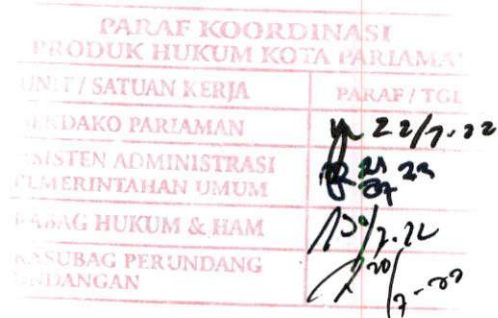 PARAF KOORDINASI
PRODUK HUKUM KOTA PARIAMA
UNIT / SATUAN KERJA PARAF / TGL
SEKDAKO PARIAMAN 22/7-22
ASISTEN ADMINISTRASI
PEMERINTAHAN UMUM 22
KABAG HUKUM & HAM /7.22
KASUBAG PERUNDANG
UNDANGAN 20/7-22